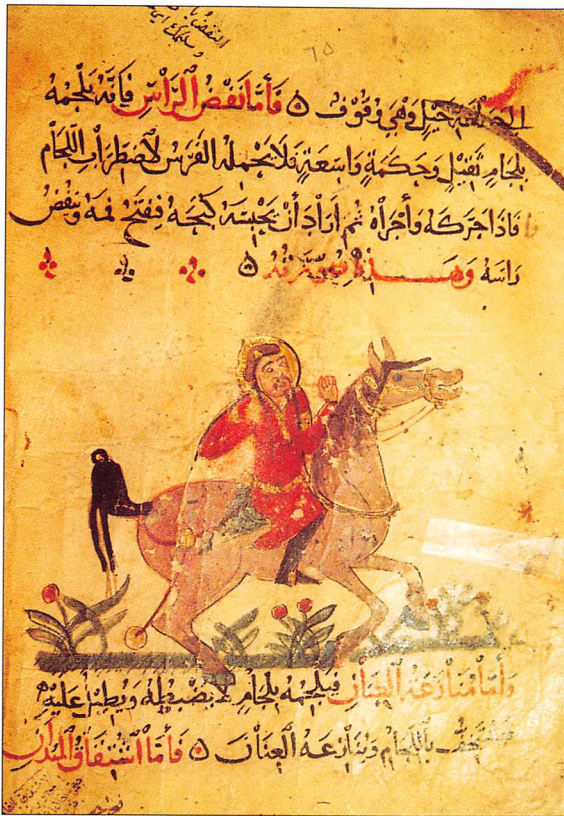 ٦٥
حيل وهي وقوف ۵ فأما نفض الرأس فإنه يلجمه
بلجام ثقيل وحكمة واسعة فلا يحمله الفرس لاضطراب اللجام
فاذا حركه وأجراه ثم أراد أن يحبسه كبحه ففتح فمه ونفض
راسه وهذه صورته ۵
وأما منازعة العنان فيلجمه بلجام لا يضبطه ويطيل عليه
باللجام وينازعه العنان ۵ فأما اشتقاق الميدان